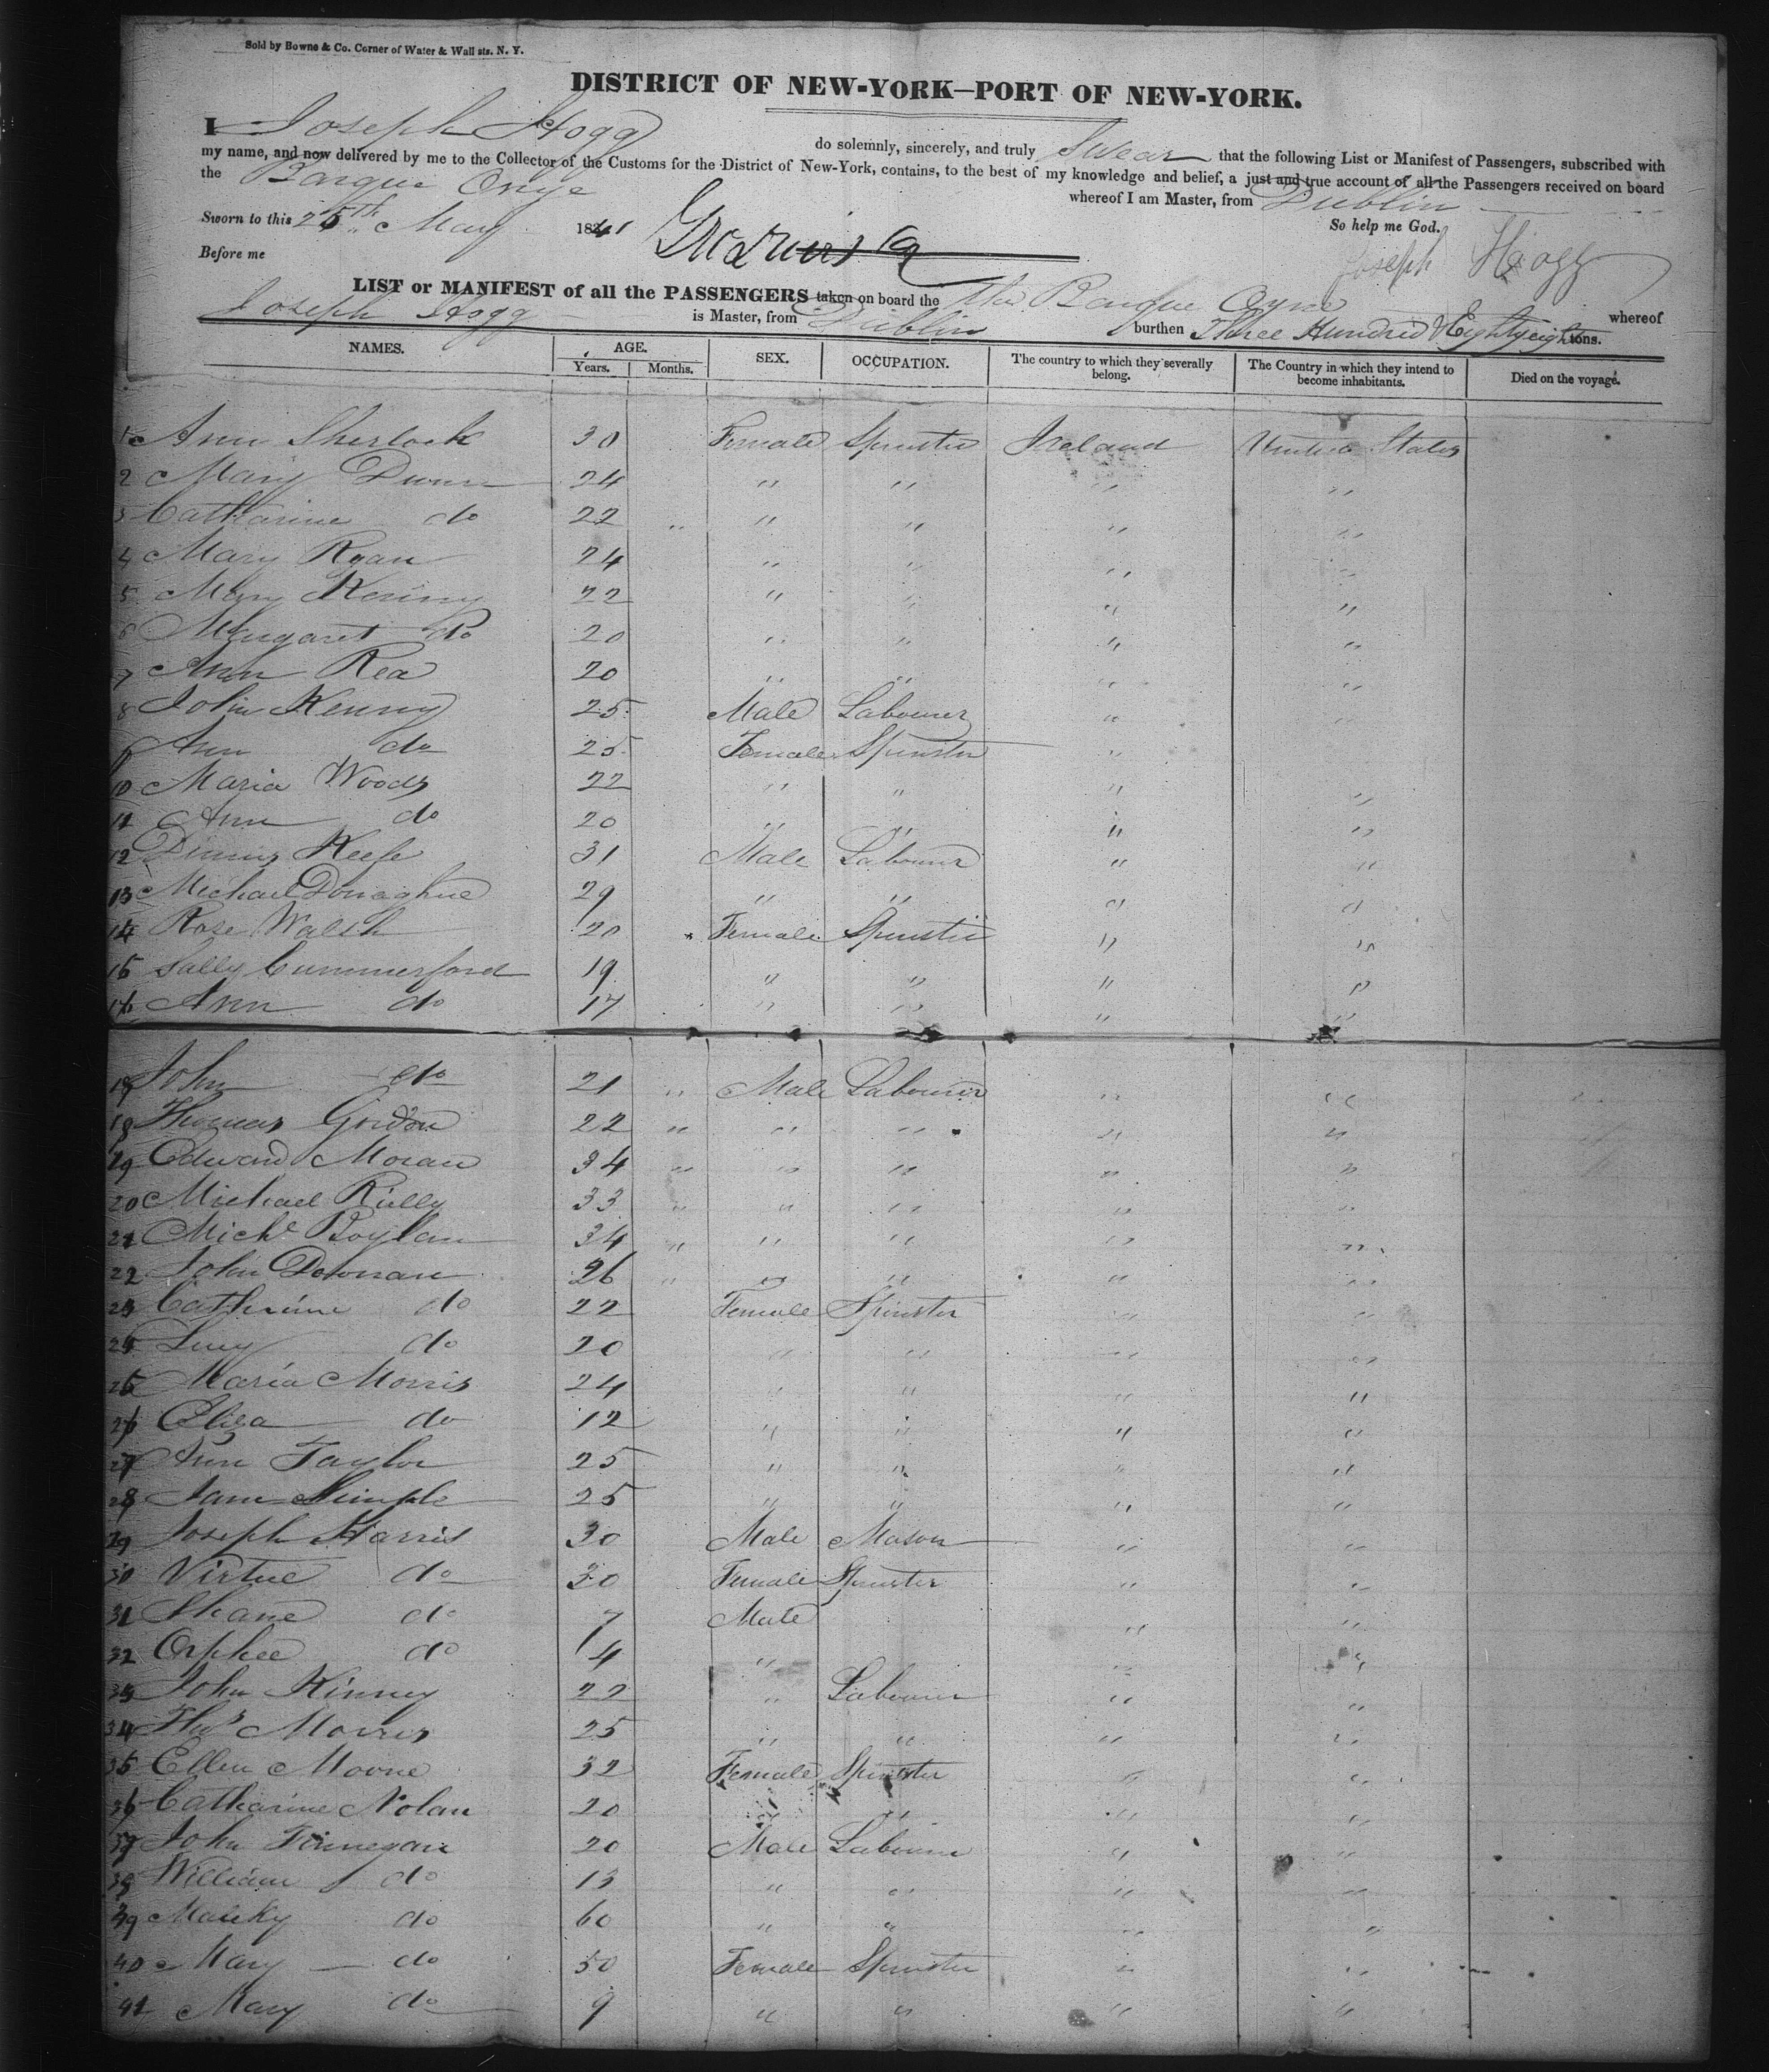 Sold by Bowne & Co. Corner of Water & Wall sts. N. Y.
DISTRICT OF NEW-YORK—PORT OF NEW-YORK.
I Joseph Hogg do solemnly, sincerely, and truly Swear that the following List or Manifest of Passengers, subscribed with
my name, and now delivered by me to the Collector of the Customs for the District of New-York, contains, to the best of my knowledge and belief, a just and true account of all the Passengers received on board
the Barque whereof I am Master, from Dublin
Sworn to this 25th May 1841 So help me God.
Before me Joseph Hogg
LIST or MANIFEST of all the PASSENGERS taken on board the The Barque whereof
Joseph Hogg is Master, from Dublin burthen Three Hundred & Eighty eight tons.
NAMES. AGE. SEX. OCCUPATION. The country to which they severally belong. The Country in which they intend to become inhabitants. Died on the voyage.
Years. Months.
1 Ann Sherlock 30 Female Spinster Ireland United States
2 Mary Dunn 24 " " " "
3 Catharine do 22 " " " " "
4 Mary Ryan 24 " " " "
5 Mary Kenny 22 " " " "
6 Margaret do 20 " " " "
7 Ann Rea 20 " " " "
8 John Kenny 25 Male Labourer " "
9 Ann do 25 Female Spinster " "
10 Maria Woods 22 " " " "
11 Ann do 20 " " " "
12 Dinnis Keefe 31 Male Labourer " "
13 Michael Donaghue 29 " " " "
14 Rose Walsh 20 Female Spinster " "
15 Sally Cummerford 19 " " " "
16 Ann do 17 " " " "
17 John do 21 " Male Labourer " "
18 Thomas Gordon 22 " " " " "
19 Edward Moran 34 " " " " "
20 Michael Rielly 33 " " " " "
21 Michl Boylan 34 " " " " "
22 John Downan 26 " " " " "
23 Catherine do 22 Female Spinster " "
24 Lucy do 20 " " " "
25 Maria Morris 24 " " " "
26 Eliza do 12 " " " "
27 Ann Taylor 25 " " " "
28 Jane Simple 25 " " " "
29 Joseph Harris 30 Male Mason " "
30 Virtue do 30 Female Spinster " "
31 Shane do 7 Male " "
32 Orphee do 4 " " "
33 John Kinney 22 " Labourer " "
34 Thos Morris 25 " " " "
35 Ellen Moone 32 Female Spinster " "
36 Catharine Nolan 20 " " " "
37 John Finnegan 20 Male Labourer " "
38 William do 13 " " " "
39 do 60 " " " "
40 Mary do 50 Female Spinster " "
41 Mary do 9 " " " "